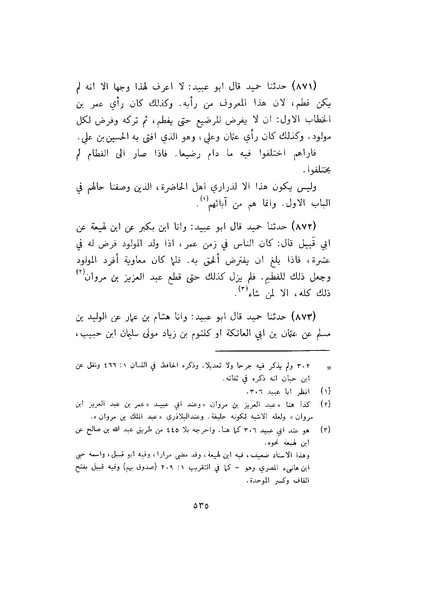 (٨٧١) حدثنا حميد قال ابو عبيد: لا اعرف لهذا وجها الا انه لم
يكن فطم، لان هذا المعروف من رأيه. وكذلك كان رأي عمر بن
الخطاب الاول: ان لا يفرض للرضيع حتى يفطم، ثم تركه وفرض لكل
مولود. وكذلك كان رأي عثمان وعلي، وهو الذي افتى به الحسين بن علي.
فاراهم اختلفوا فيه ما دام رضيعا. فاذا صار الى الفطام لم
يختلفوا.
وليس يكون هذا الا لذراري اهل الحاضرة، الذين وصفنا حالهم في
الباب الاول. وانما هم من آبائهم(١).
(٨٧٢) حدثنا حميد قال ابو عبيد: وانا ابن بكير عن ابن لهيعة عن
ابي قَبيل قال: كان الناس في زمن عمر، اذا ولد المولود فرض له في
عشرة، فاذا بلغ ان يفترض أُلحق به. فلما كان معاوية أفرد المولود
وجعل ذلك للفطيم. فلم يزل كذلك حتى قطع عبد العزيز بن مروان(٢)
ذلك كله، الا لمن شاء(٣).
(٨٧٣) حدثنا حميد قال ابو عبيد: وانا هشام بن عمار عن الوليد بن
مسلم عن عثمان بن ابي العاتكة او كلثوم بن زياد مولى سليمان ابن حبيب،
* ٣٠٢ ولم يذكر فيه جرحا ولا تعديلا. وذكره الحافظ في اللسان ١: ٤٦٦ ونقل عن
ابن حبان انه ذكره في ثقاته.
(١) انظر ابا عبيد ٣٠٦.
(٢) كذا هنا «عبد العزيز بن مروان» وعند ابي عبيد «عمر بن عبد العزيز ابن
مروان» ولعله الاشبه لكونه خليفة. وعند البلاذري «عبد الملك بن مروان».
(٣) هو عند ابي عبيد ٣٠٦ كما هنا. واخرجه بلا ٤٤٥ من طريق عبد الله بن صالح عن
ابن لهيعة نحوه.
وهذا الاسناد ضعيف، فيه ابن لهيعة، وقد مضى مرارا، وفيه ابو قبيل، واسمه حيي
ابن هانىء المصري وهو - كما في التقريب ١: ٢٠٩ (صدوق يهم) وفيه قبيل بفتح
القاف وكسر الموحدة.
٥٣٥